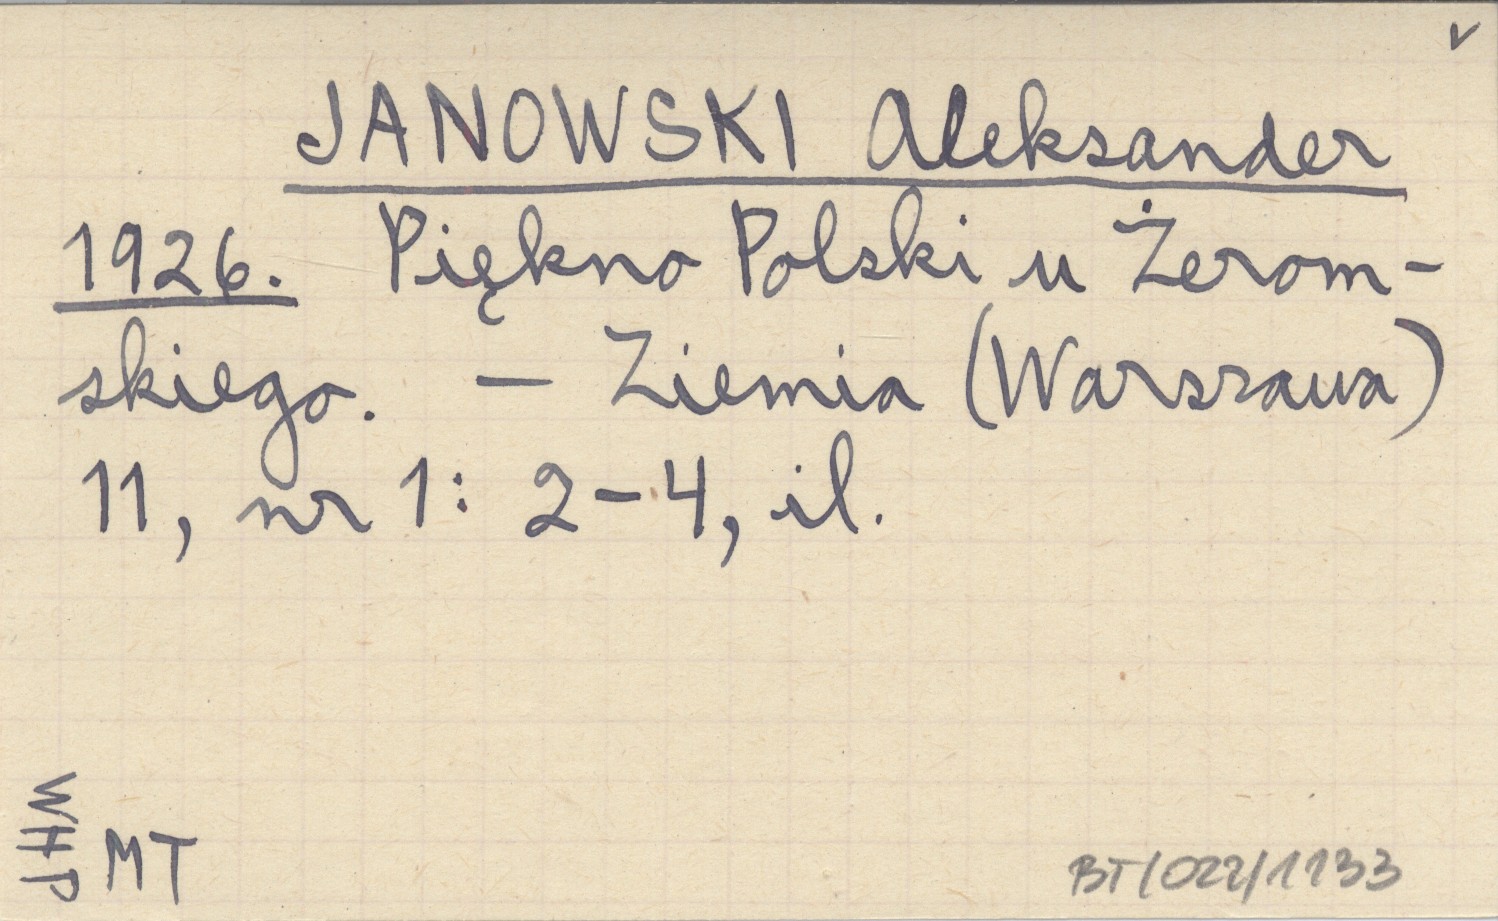 v
JANOWSKI Aleksander
1926. Piękno Polski u Żerom-
skiego. — Ziemia (Warszawa)
11, nr 1: 2-4, il.
WHP
MT
BT/022/1133